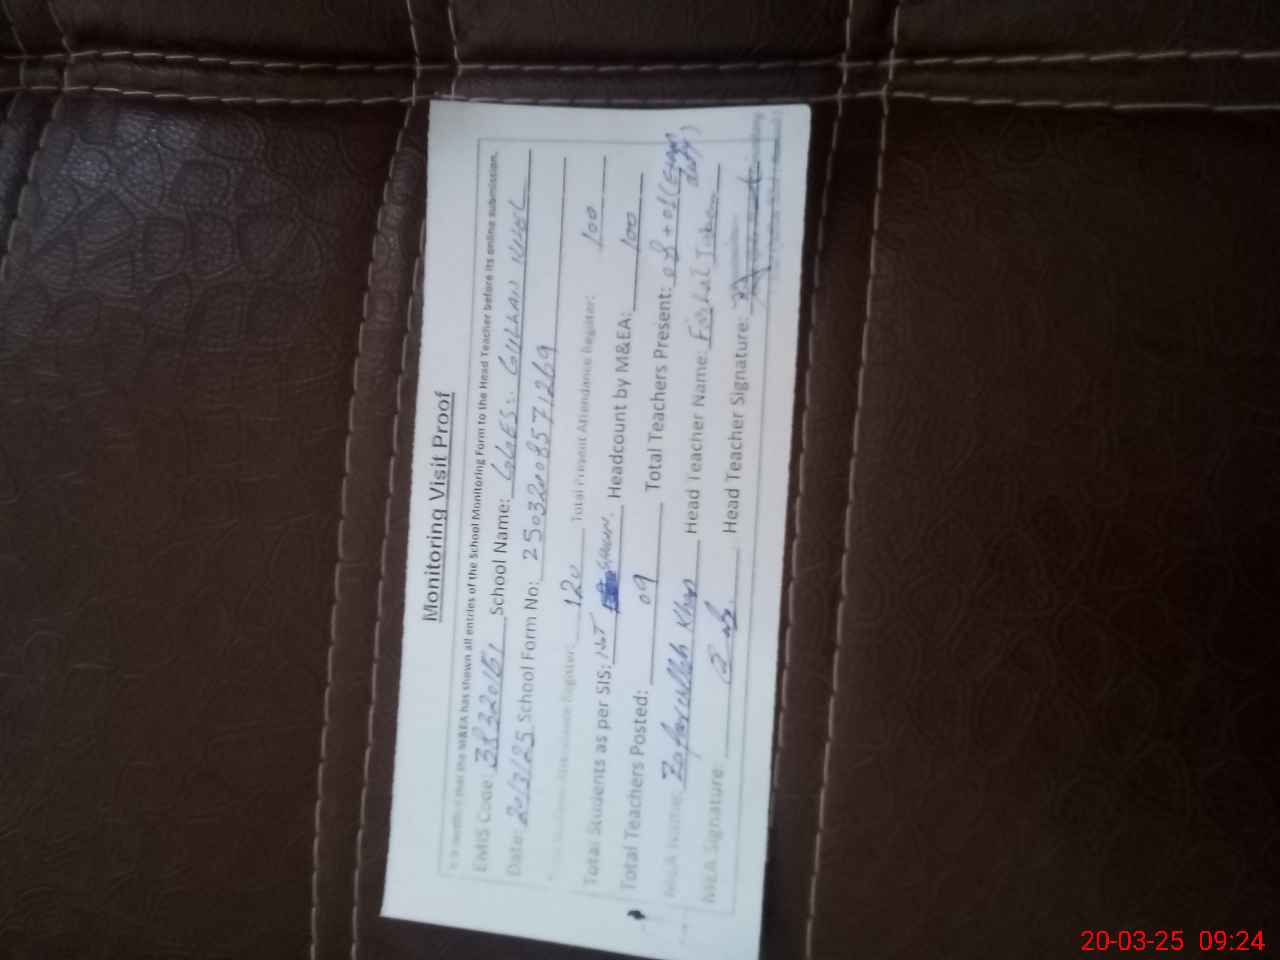 Monitoring Visit Proof
that the M&EA has shown all entries of the School Monitoring Form to the Head Teacher before its online submission.
EMIS Code: 38320161 School Name: GGES.
Date: 20/3/25 School Form No: 25032008571269
Attendance Register: 120 Total Present Attendance Register: 100
Total Students as per SIS: NOT SHOWN. Headcount by M&EA: 100
Total Teachers Posted: 09 Total Teachers Present: 08+01(Exam duty)
MEA Name: Zafarullah Khan Head Teacher Name:
MEA Signature: Head Teacher Signature:
20-03-25 09:24